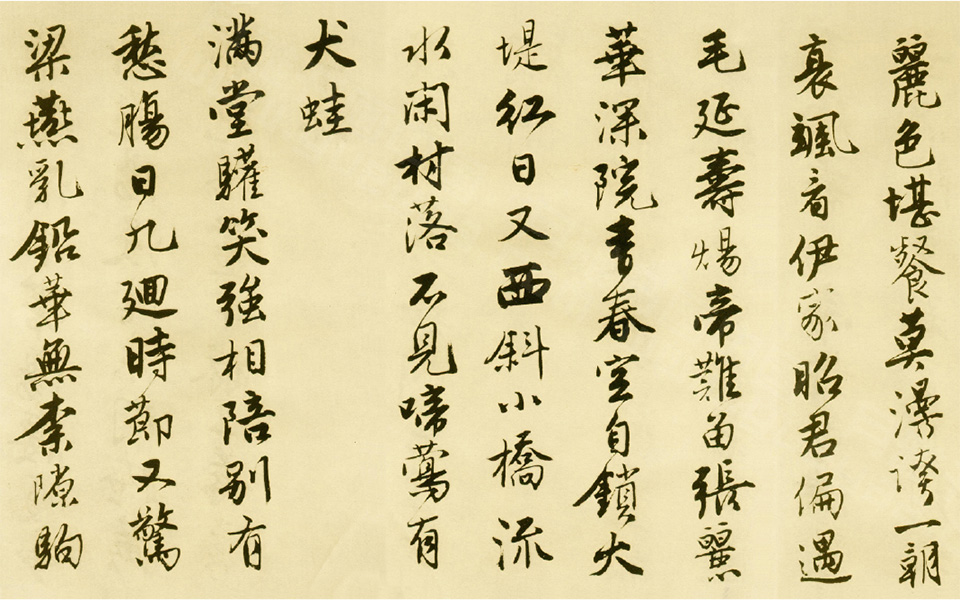 麗色堪餐莫漫誇一朝
衰颯看伊家昭君偏遇
毛延壽煬帝難留張麗
華深院青春空自鎖夕
堤紅日又西斜小橋流
水閑村落不見啼鶯有
犬蛙
滿堂驩笑強相陪別有
愁腸日九迴時節又驚
梁燕乳鉛華無柰隙駒